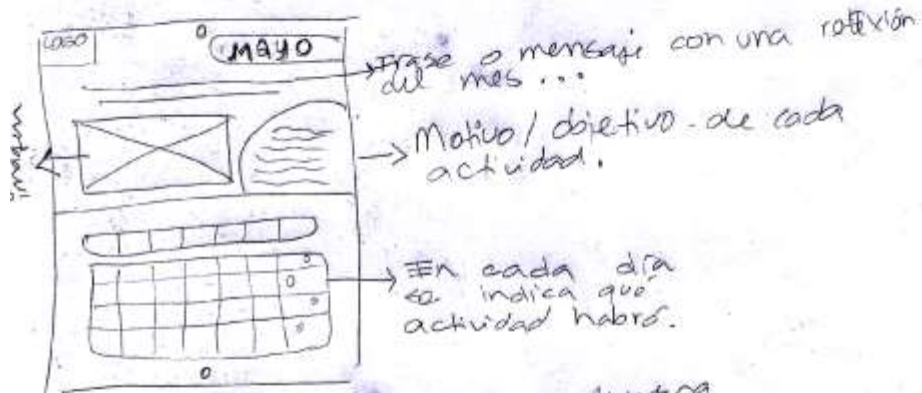 LOGO
MAYO
Frase o mensaje con una reflexión
del mes...
Motivo / objetivo de cada
actividad.
En cada día
se indica qué
actividad habrá.